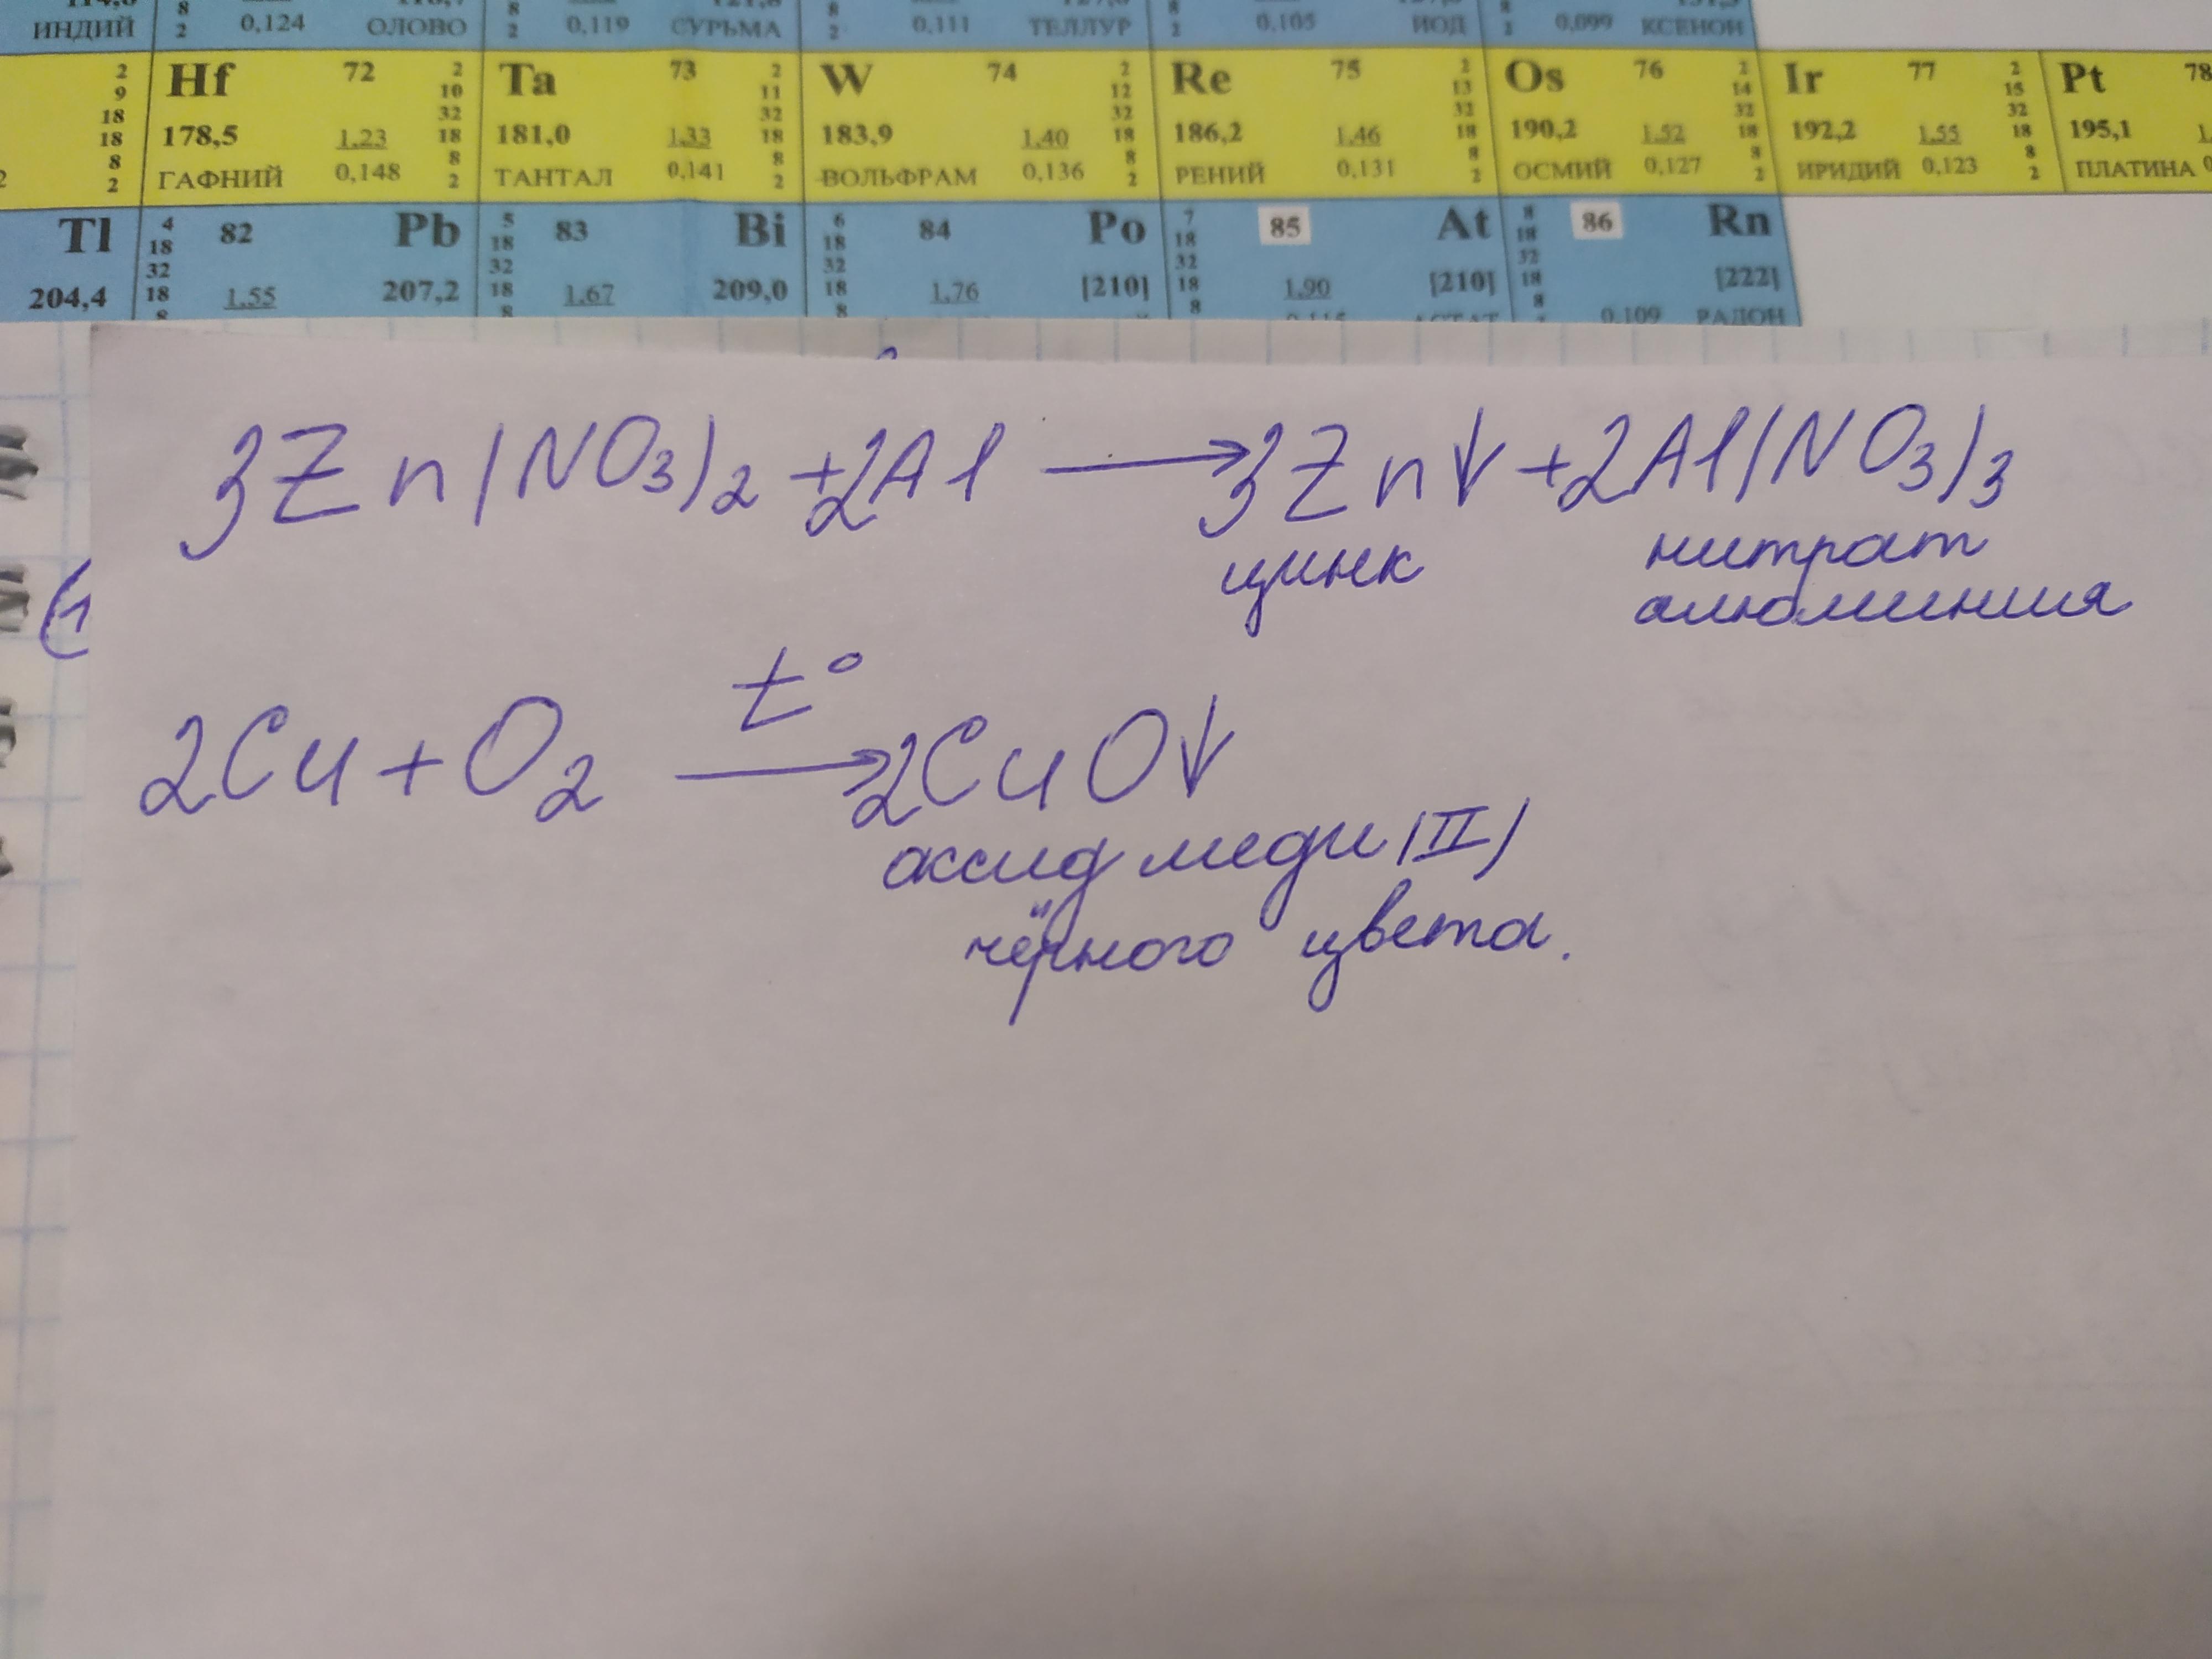 114,8 118,7 121,8 127,6 127,0 131,3
ИНДИЙ 8 2 0,124 ОЛОВО 8 2 0,119 СУРЬМА 8 2 0,111 ТЕЛЛУР 8 2 0,105 ИОД 8 2 0,099 КСЕНОН
2 Hf 72 2 Ta 73 2 W 74 2 Re 75 2 Os 76 2 Ir 77 2 Pt 78
9 10 11 12 13 14 15
18 32 32 32 32 32 32
18 178,5 1,23 18 181,0 1,33 18 183,9 1,40 18 186,2 1,46 18 190,2 1,52 18 192,2 1,55 18 195,1
8 8 8 8 8 8 8
2 2 ГАФНИЙ 0,148 2 ТАНТАЛ 0,141 2 ВОЛЬФРАМ 0,136 2 РЕНИЙ 0,131 2 ОСМИЙ 0,127 2 ИРИДИЙ 0,123 2 ПЛАТИНА
Tl 4 82 Pb 5 83 Bi 6 84 Po 7 85 At 8 86 Rn
18 18 18 18 18
32 32 32 32 32
204,4 18 1,55 207,2 18 1,67 209,0 18 1,76 [210] 18 1,90 [210] 18 [222]
8 8 8 8 0,115 АСТАТ 8 0,109 РАДОН
3Zn(NO₃)₂ + 2Al ⟶ 3Zn↓ + 2Al(NO₃)₃
цинк нитрат
алюминия
t°
2Cu + O₂ ⟶ 2CuO↓
оксид меди (II)
чёрного цвета.